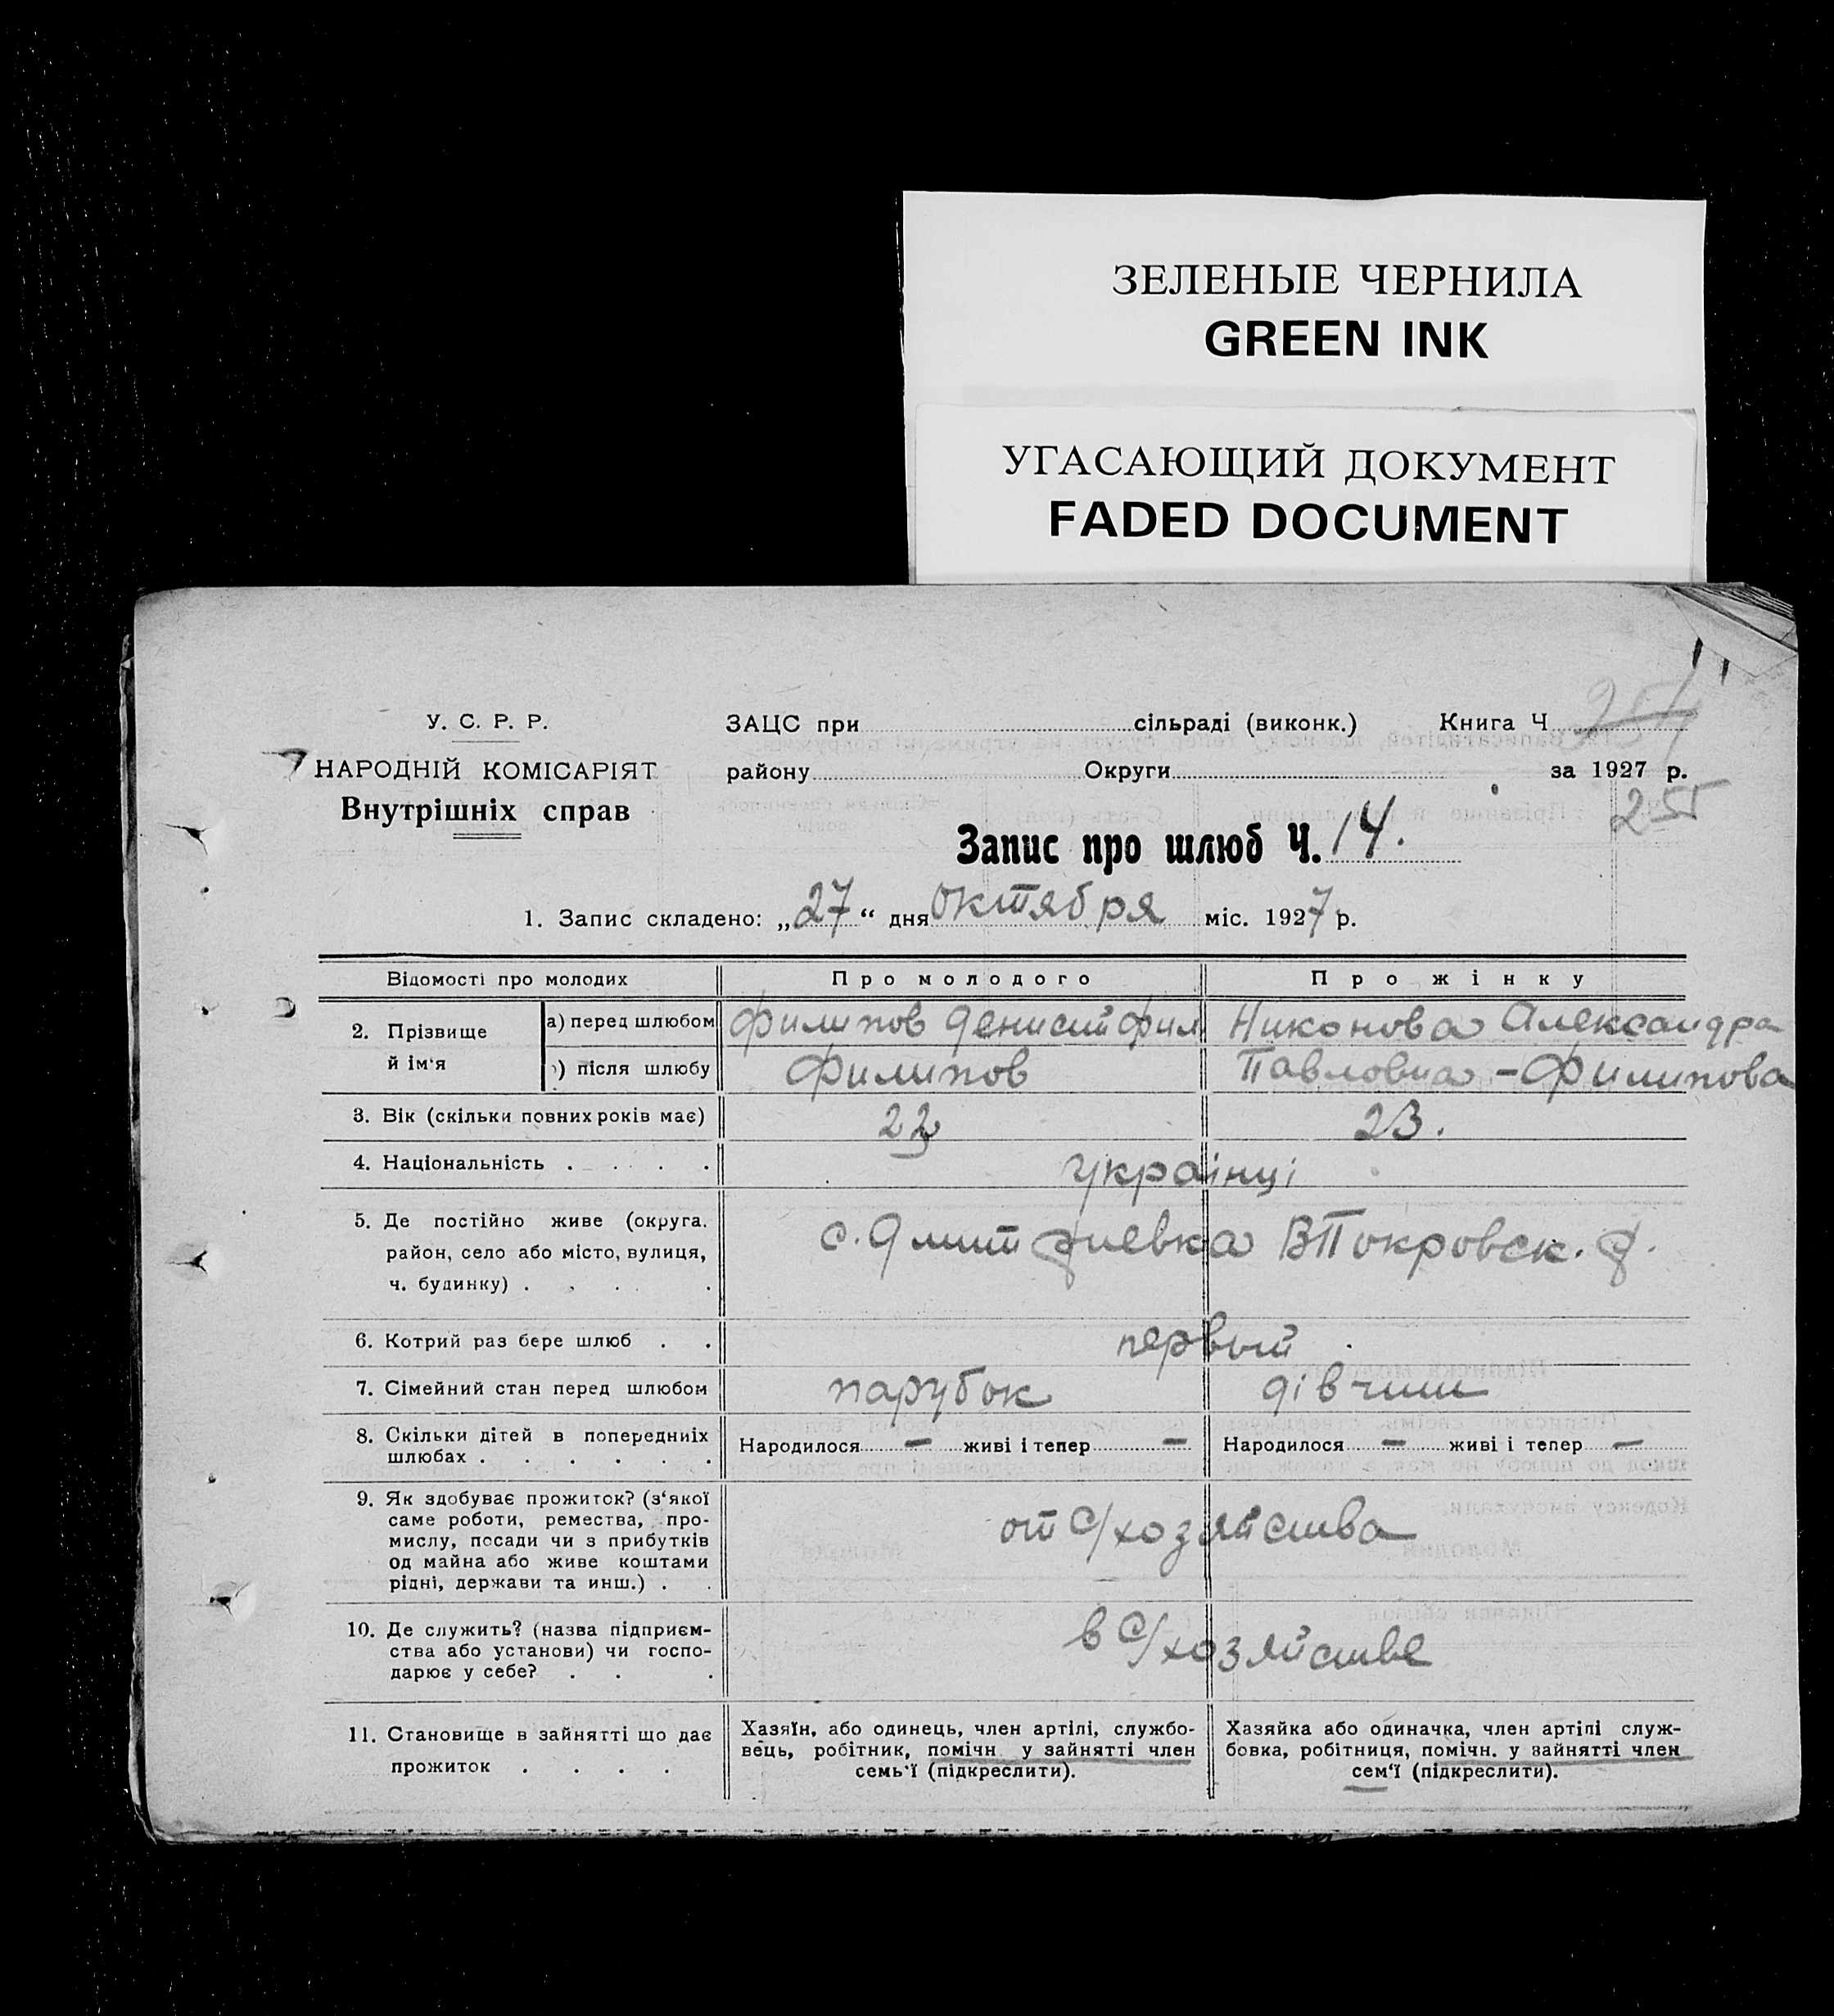 ЗЕЛЕНЫЕ ЧЕРНИЛА
GREEN INK
УГАСАЮЩИЙ ДОКУМЕНТ
FADED DOCUMENT
У. С. Р. Р.
НАРОДНІЙ КОМІСАРІЯТ
Внутрішніх справ
ЗАЦС при сільраді (виконк.) Книга Ч
району Округи за 1927 р.
255
Запис про шлюб Ч. 14.
1. Запис складено: „27“ дня октября міс. 1927 р.
Відомості про молодих Про молодого Про жінку
2. Прізвище й ім'я а) перед шлюбом Филипов Денисий Фил Никонова Александра
) після шлюбу Филипов Павловна - Филипова
3. Вік (скільки повних років має) 22 23.
4. Національність . . . . . українці
5. Де постійно живе (округа.
район, село або місто, вулиця,
ч. будинку) . . . .
с. Дмитриевка ВПокровск. р.
6. Котрий раз бере шлюб . . первый
7. Сімейний стан перед шлюбом парубок дівчина
8. Скільки дітей в попередниіх
шлюбах . . . . . .
Народилося — живі і тепер — Народилося — живі і тепер —
9. Як здобуває прожиток? (з'якої
саме роботи, ремества, про-
мислу, посади чи з прибутків
од майна або живе коштами
рідні, держави та инш.) . .
от с/хозяйства
10. Де служить? (назва підприєм-
ства або установи) чи госпо-
дарює у себе? . . .
в с/хозяйстве
11. Становище в зайнятті що дає
прожиток . . . .
Хазяїн, або одинець, член артілі, службо-
вець, робітник, помічн у зайнятті член
семь'ї (підкреслити).
Хазяйка або одиначка, член артілі служ-
бовка, робітниця, помічн. у зайнятті член
сем'ї (підкреслити).